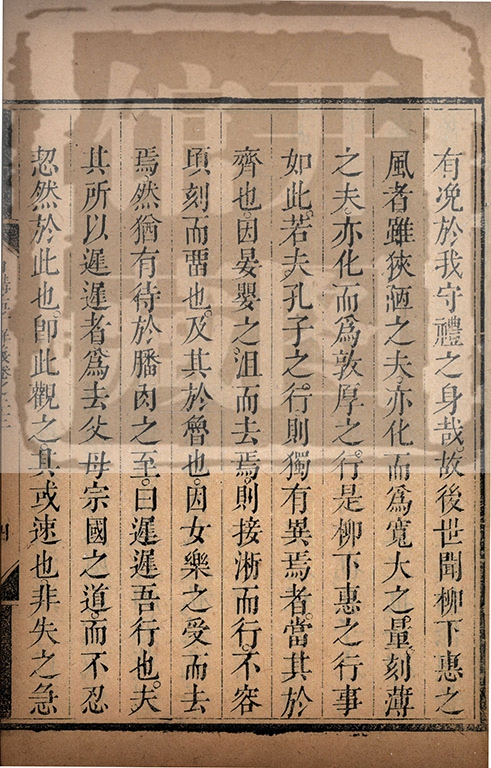 有浼於我守禮之身哉故後世聞柳下惠之
風者雖狹陋之夫亦化而爲寬大之量刻薄
之夫亦化而爲敦厚之行是柳下惠之行事
如此若夫孔子之行則獨有異焉者當其於
齊也因晏嬰之沮而去焉則接淅而行不容
頃刻而畱也及其於魯也因女樂之受而去
焉然猶有待於膰肉之至曰遲遲吾行也夫
其所以遲遲者爲去父母宗國之道而不忍
恝然於此也卽此觀之其或速也非失之急